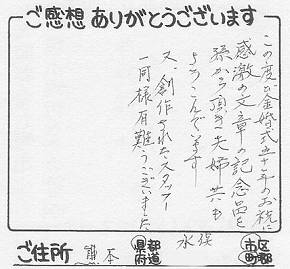 ご感想ありがとうございます
この度が金婚式五十年のお祝に
感激の文章の記念品を
孫から頂き夫婦共も
よろこんでいます
又、創作されたスタッフ
一同様有難うございました
ご住所 熊本 都道府県 水俣 市区町郡